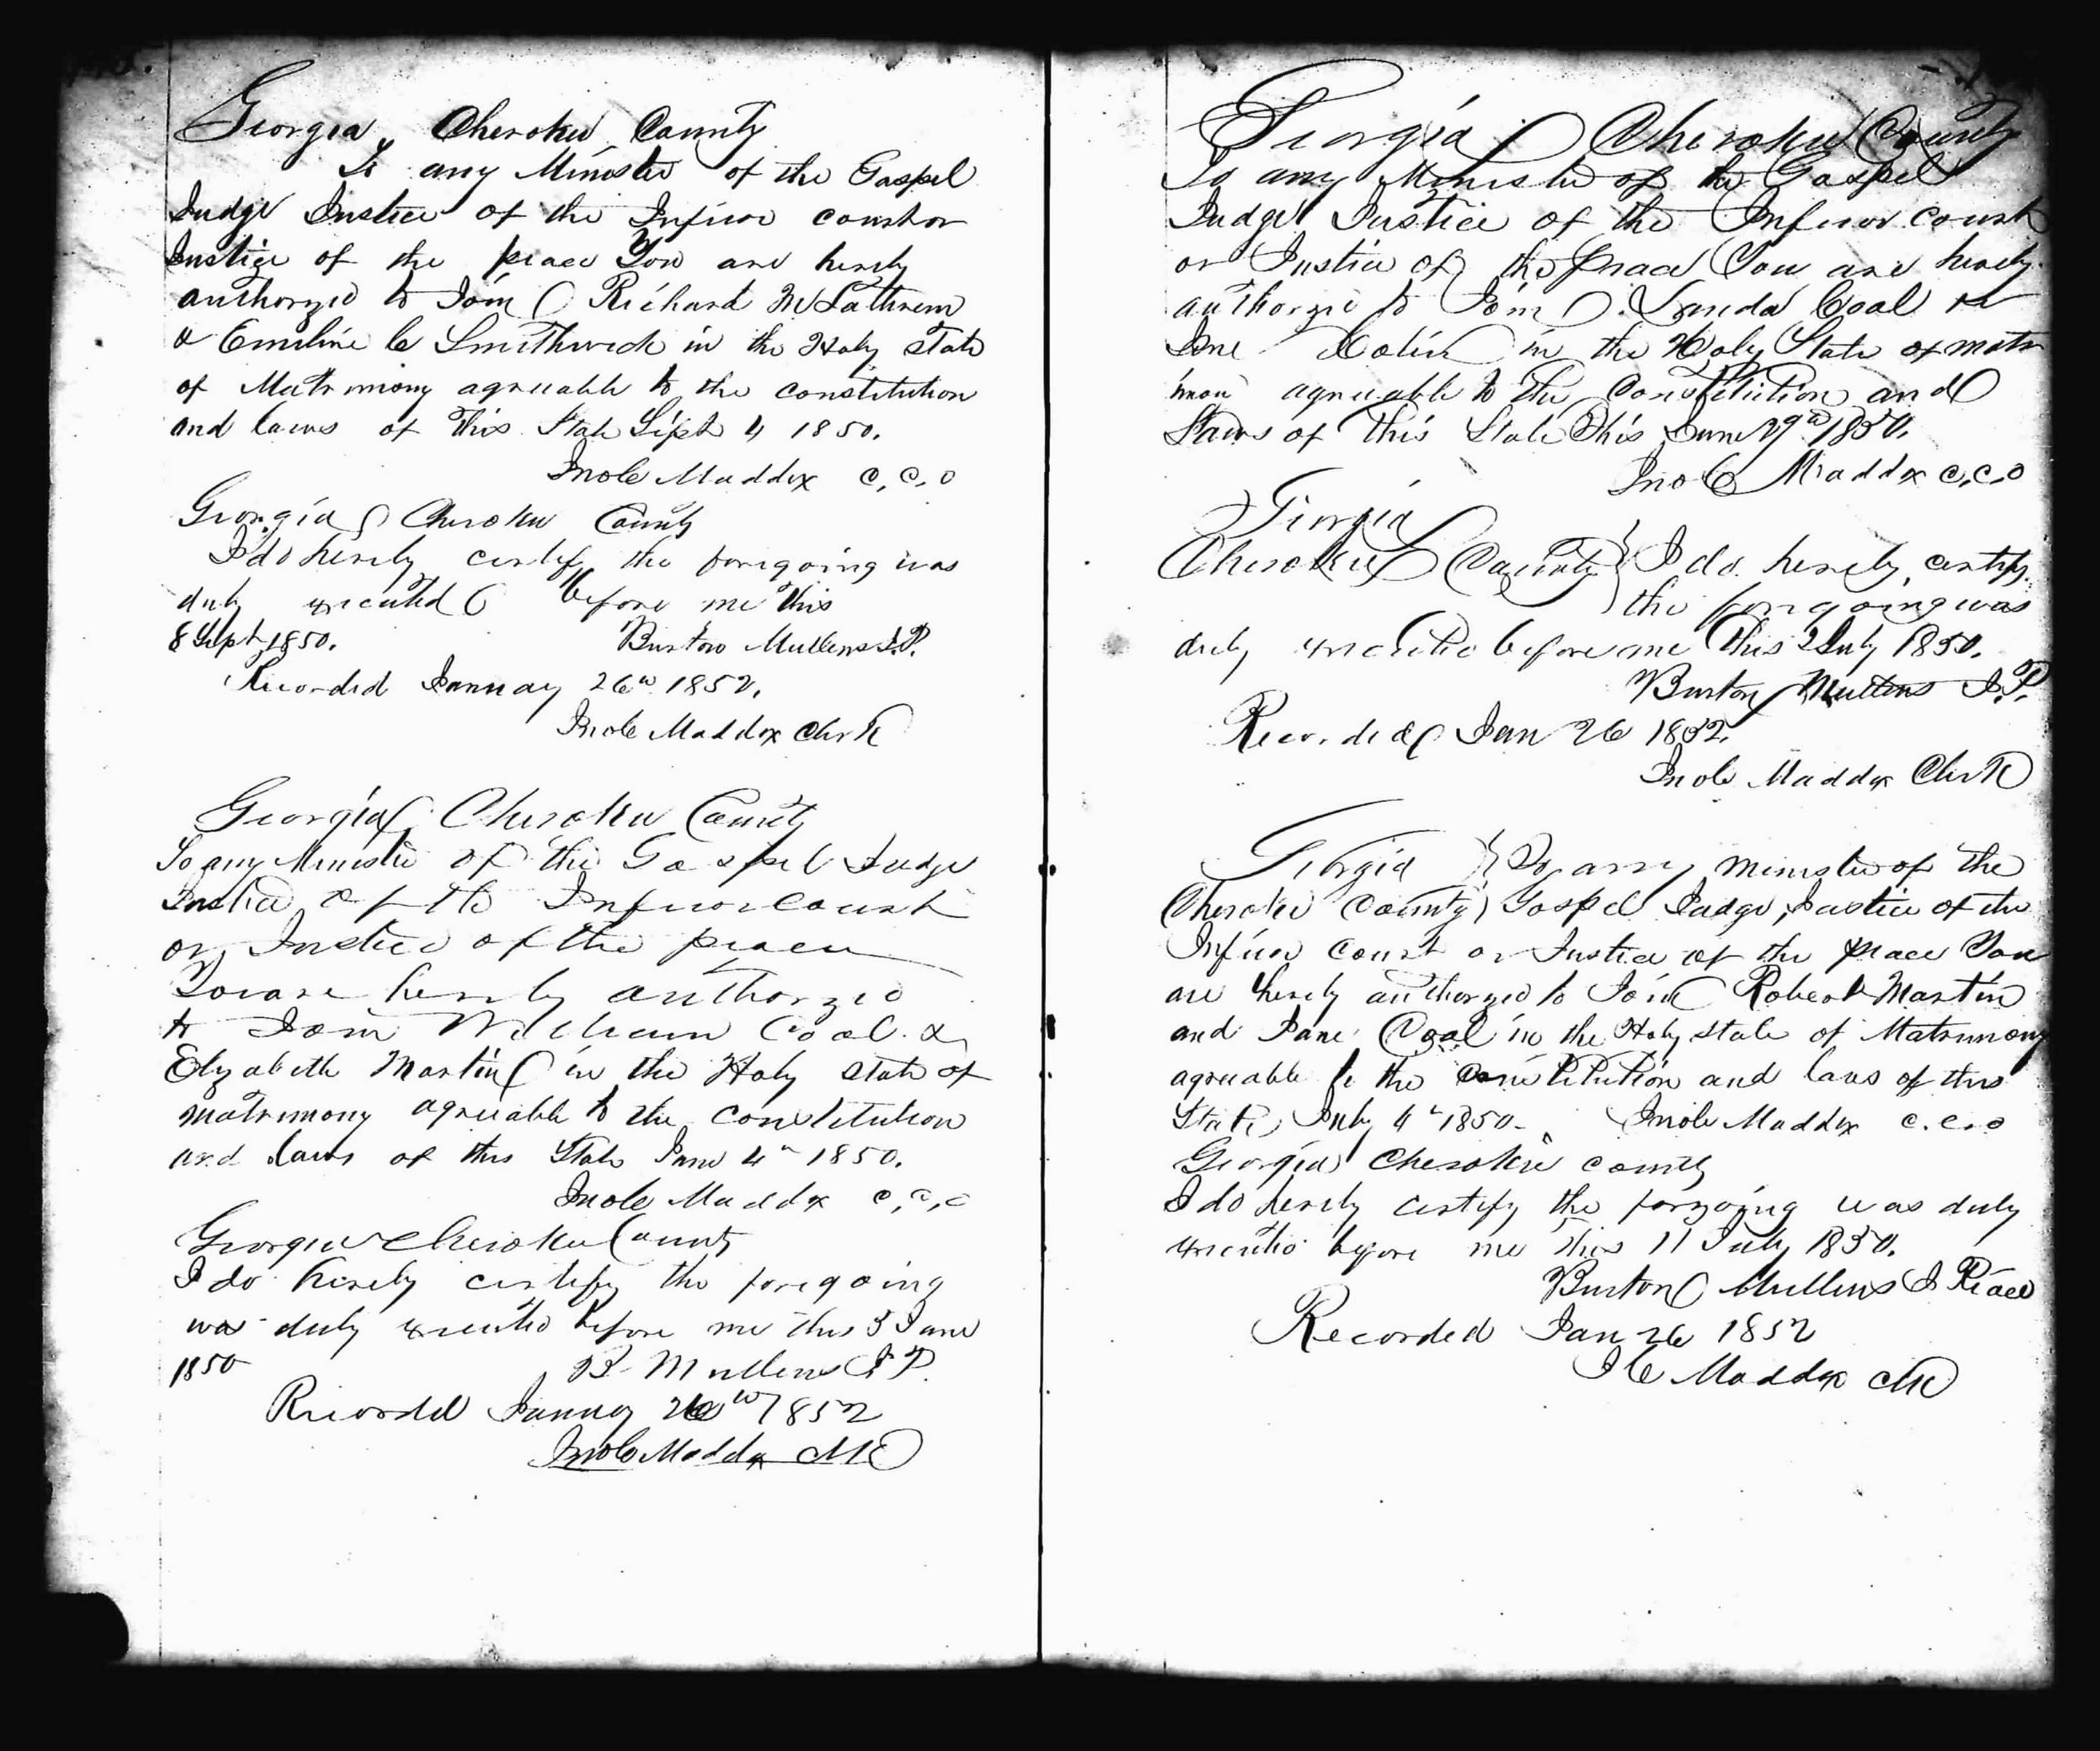 Georgia, Cherokee County
To any Minister of the Gospel
Judge Justice of the Inferior court or
Justice of the peace You are hereby
authorzed to Join Richard M Lathrem
& Emeline C Smithwick in the Holy State
of Matrimony agreeable to the constitution
and laws of this State Sept 4 1850.
Jno C Maddox C.C.O
Georgia Cherokee County
I do hereby certify the foregoing was
duly executed before me this
8 Sept 1850. Burton Mullens J.P.
Recorded January 26th 1852.
Jno C Maddox Clerk
Georgia Cherokee County
To any Minister of the Gospel Judge
Justice of the Inferior Court
or Justice of the peace
You are hereby authorzed
to Join William Coal &
Elizabeth Martin in the Holy State of
matrimony agreeable to the constitution
and laws of this State June 4th 1850.
Jno C Maddox C.C.O
Georgia Cherokee County
I do hereby certify the foregoing
was duly executed before me this 5 June
1850 B. Mullens J.P.
Recorded January 26th 1852
Jno C Maddox Clk
Georgia Cherokee County
To any Minister of the Gospel
Judge Justice of the Inferior court
or Justice of the peace You are hereby
authorzed to Join Coal &
in the Holy State of matri
mony agreeable to the Constitution and
Laws of this State This June 29th 1850.
Jno C Maddox C.C.O
Georgia
Cherokee County } I do hereby certify
the foregoing was
duly executed before me this 2 July 1850.
Burton Mullens J.P.
Recorded Jan 26 1852.
Jno C Maddox Clerk
Georgia } To any minister of the
Cherokee County) Gospel Judge, Justice of the
Inferior Court or Justice of the peace You
are hereby authorzed to Join Robert Martin
and Jane Coal in the Holy state of Matrimony
agreeable to the constitution and laws of this
State, July 4th 1850. Jno C Maddox C.C.O
Georgia Cherokee county
I do hereby certify the forgoing was duly
executed before me this 11 July 1850.
Burton Mullens J Peace
Recorded Jan 26 1852
J C Maddox Clk